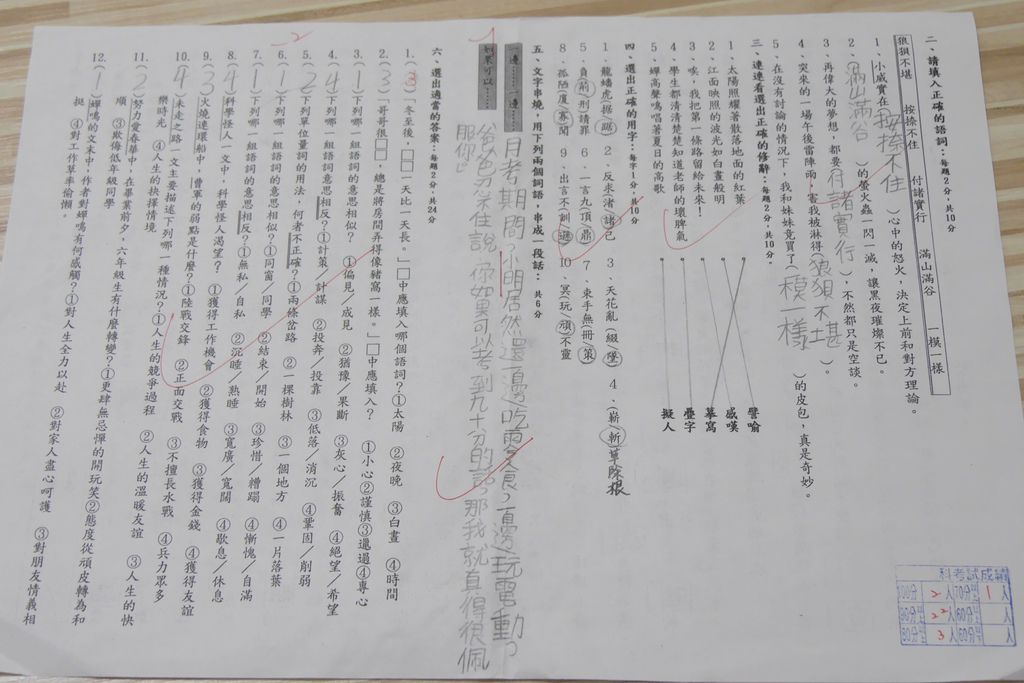 二、請填入正確的語詞：每題2分，共10分
狼狽不堪 按捺不住 付諸實行 滿山滿谷 一模一樣
1、小威實在(按捺不住)心中的怒火，決定上前和對方理論。
2、(滿山滿谷)的螢火蟲一閃一滅，讓黑夜璀璨不已。
3、再偉大的夢想，都要(付諸實行)，不然都只是空談。
4、突來的一場午後雷陣雨，害我被淋得(狼狽不堪)。
5、在沒有討論的情況下，我和妹妹竟買了(一模一樣)的皮包，真是奇妙。
三、連連看選出正確的修辭：每題2分，共10分。
1 太陽照耀著散落地面的紅葉
2 江面映照的波光如白晝般明
3 唉，我把第一條路留給未來！
4 學生都清清楚楚知道老師的壞脾氣
5 蟬高聲鳴唱著夏日的高歌
譬喻
感嘆
摹寫
疊字
擬人
四 選出正確的用字：每字1分，共10分
1 龍蟠虎(据/踞) 2、反求渚(諸)己 3、天花亂(綴/墜) 4、(嶄/斬)草除根
5、負(荊)刑請罪 6、一言九(頂/鼎) 7、束手無(冊/策)
8 孤陋(寡)聞 9、出言不(訓/遜) 10、冥(玩/頑)不靈
五、文字串燒，用下列兩個詞語，串成一段話：共6分
一邊……一邊……
如果可以……
月考期間，小明居然還邊吃零食，一邊玩電動。
爸爸忍不住說「你如果可以考到九十分的話，那我就真得很佩
服你」
六、選出適當的答案：每題2分，共24分
1.(3)「冬至後，□□一天比一天長。」□□中應填入哪個語詞？①太陽 ②夜晚 ③白晝 ④時間
2.(3)「哥哥很□□，總是將房間弄得像豬窩一樣。」□□中應填入？ ①小心②謹慎③邋遢④專心
3.(1)下列哪一組語詞的意思相似？ ①偏見／成見 ②猶豫／果斷 ③灰心／振奮 ④絕望／希望
4.(4)下列哪一組語詞意思相反？①計策／計謀 ②投奔／投靠 ③低落／消沉 ④鞏固／削弱
5.(2)下列單位量詞的用法，何者不正確？①兩條岔路 ②一棵樹林 ③一個地方 ④一片落葉
6.(1)下列哪一組語詞的意思相似？①同窗／同學 ②結束／開始 ③珍惜／糟蹋 ④慚愧／自滿
7.(1)下列哪一組語詞的意思相反？①無私／自私 ②沉睡／熟睡 ③寬廣／寬闊 ④歇息／休息
8.(4)科學怪人一文中，科學怪人渴望？①獲得工作機會 ②獲得食物 ③獲得金錢 ④獲得友誼
9.(3)火燒連環船中，曹軍的弱點是什麼？①陸戰交鋒 ②正面交戰 ③不擅長水戰 ④兵力眾多
10.(4)未走之路一文主要描述下列哪一種情況？①人生的競爭過程 ②人生的溫暖友誼 ③人生的快
樂時光 ④人生的抉擇情境
11.(2)努力愛春華中，在畢業前夕，六年級生有什麼轉變？①更肆無忌憚的開玩笑②態度從頑皮轉為和
順 ③欺侮低年級同學
12.(1)蟬鳴的文末中，作者對蟬鳴有何感觸？①對人生全力以赴 ②對家人盡心呵護 ③對朋友情義相
挺 ④對工作草率偷懶。
科考試成績
100分 2人 70分 1人
90分 22人 60分 人
80分 3人 60分 人